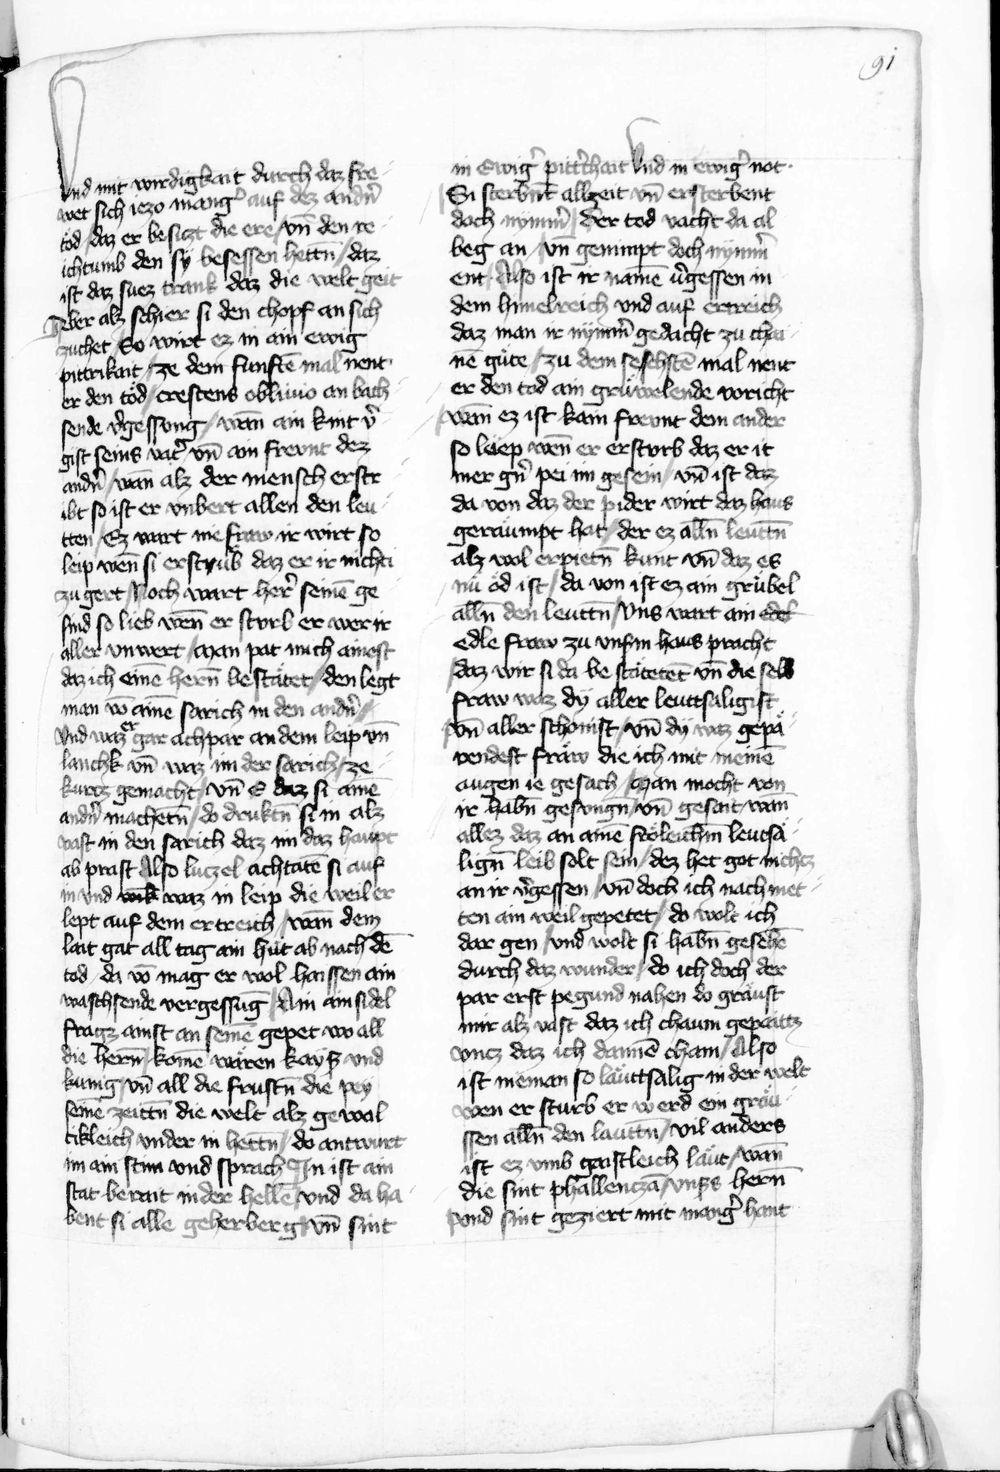 91
Vnd mit wirdigkait durch daz fre
wet sich iezo mang̕ auf dez andn̕
tod / daz er besiczt die ere / vn̄ den re
ichtumb den sy besessen hettn̄ / daz
ist daz suez trank daz die welt geit
Aber alz schier si den chopf an sich
zuchet / So wirt ez in ain ewig
pittrikait / ze dem funftē mal nent
er den töd / crescens oblivio an bach
sende v̕gessung / wan̄ ain kint v̕
gist seins vat̕ vn̄ ain frevnt dez
andn̕ / wan̄ alz der mensch erstr
ibt so ist er vnbert allen den leu
tten / Ez wart nie fraw ir wirt so
leip wen̄ si ersturb daz er ir nicht
zu gert / Noch wart her̕ seinē ge
sind so lieb wen̄ er sturb er wer ir
aller vnwert / Man pat mich ainest
daz ich einē hern̄ bestätet / den legt
man vō ainē sarich in den andn̕ /
Vnd waz er gar achpar an dem leip vn̄
lanchk vn̄ waz im der sarich / ze
kurcz gemacht / vn̄ E daz si ainē
andn̕ machetn̄ / do druktn̄ si in alz
vast in den sarich daz im daz haupt
ab prast Also luczel achtatē si auf
in vnd waz in leip die weil er
lept auf dem ertreich / wan̄ dem
lait gat all tag ain hut ab nach dē
tod / da vō mag er wol haissen ain
wachsende vergessūg / Ain ainsidel
fragt ainst an seinē gepet wo all
die hern̄ / kome wären kays̕ vnd
kunig / vn̄ all die frustn̄ die pey
seinē zeittn̄ die welt alz gewal
tikleich vnder in hettn̄ / do antwurt
im ain stim vnd sprach In ist ain
stat berait in der hellē / vnd da ha
bent si alle geherberg vn̄ sint
in Ewig̕ pittrhait Vnd in ewig̕ not
Si sterbnt allzeit vn̄ ersterbent
doch nymm̕ / der tod vacht da al
beg an / vn̄ genimpt doch nymm̕
ent / Also ist ir namē v̕gessen in
dem himelreich vnd auf ertreich
daz man ir nymm̕ gedacht zu chai
nē güte / zu dem sechstē mal nent
er den tod ain grüwelende voricht
wan̄ ez ist kain frevnt dem ander
so leiep wen̄ er ersturb daz er it
mer gn̕ pei im gesein / vn̄ ist daz
da von daz der pider wirt daz haus
geräumpt hat / der ez alln̄ leuttn̄
alz wol erpietn̄ kunt vn̄ daz es
nü öd ist / da von ist ez ain grübel
alln̄ den leuttn̄ / Vns wart ain edel
edle fraw zu vnsm haus pracht
daz wir si da bestätetēt vn̄ die selb
fraw waz dy aller leutsaligist
vn̄ aller schonist / vn̄ dy waz gepä
rendest fraw die ich mit meinē
augen ie gesach / Man mocht von
ir habn̄ gesungn̄ / vn̄ gesait wan̄
allez daz an ainē frölichm leutsä
lign̄ leib solt sein / dez het got nichcz
an ir v̕gessen / vn̄ doch ich nach met
ten ain weil gepetet / do wolt ich
dar gen / vnd wolt si habn̄ gesehē
durch daz wunder / do ich doch der
par erst pegund nahen do gräust
mir alz vast daz ich chaum gepaittz
vncz daz ich dannē cham / Also
ist nieman so läuttsalig in der welt
wen er sturb er werd ein gräu
ssen alln̄ den lauttn̄ / vil anders
ist ez vmb gaistleich läut / wan̄
die sint phallencza / vns̕s hern̄
vnd sint geziert mit mang̕ hant